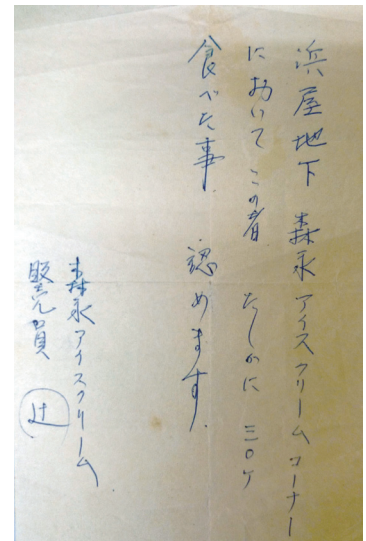 浜屋地下 森永アイスクリームコーナー
において この者 たしかに 三〇ケ
食べた事 認めます
森永アイスクリーム
販売員 辻